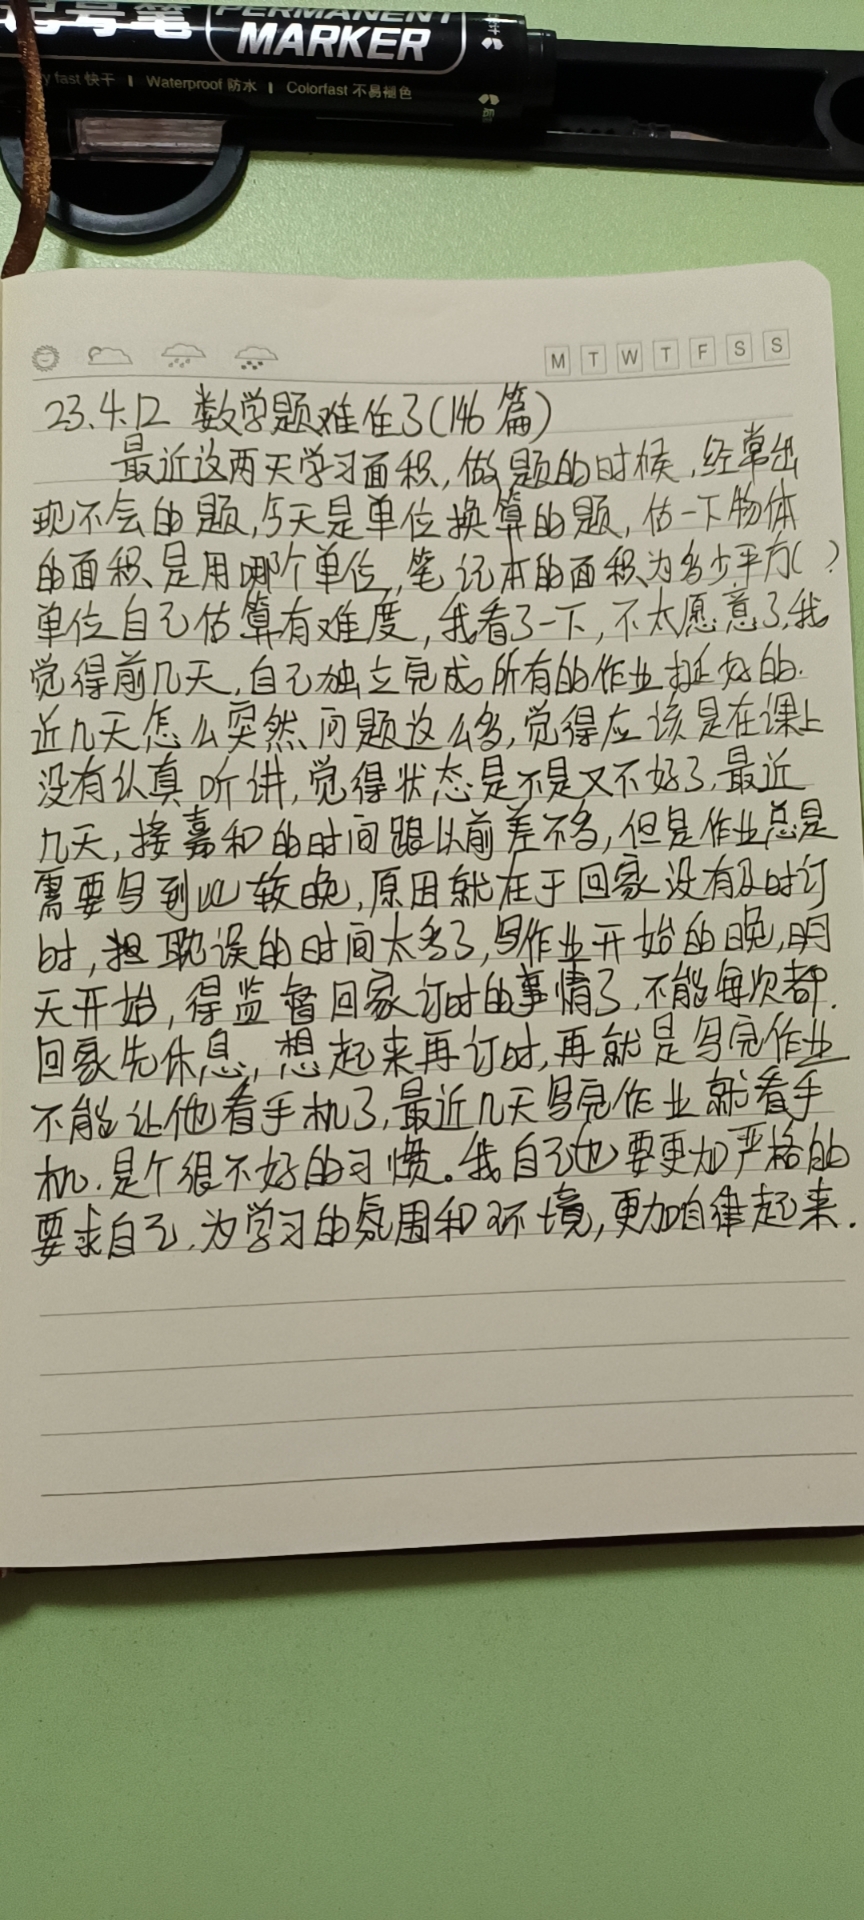 记号笔 PERMANENT MARKER
y fast 快干 Waterproof 防水 Colorfast 不易褪色
M T W T F S S
23.4.12 数学题难住了(146篇)
最近这两天学习面积,做题的时候,经常出
现不会的题,今天是单位换算的题,估一下物体
的面积是用哪个单位,笔记本的面积为多少平方(?
单位自己估算有难度,我看了一下,不太愿意了,我
觉得前几天,自己独立完成所有的作业挺好的.
近几天怎么突然问题这么多,觉得应该是在课上
没有认真听讲,觉得状态是不是又不好了,最近
几天,接嘉和的时间跟以前差不多,但是作业总是
需要写到比较晚,原因就在于回家没有及时订
时,担耽误的时间太多了,写作业开始的晚,明
天开始,得监督回家订时的事情了,不能每次都.
回家先休息,想起来再订时,再就是写完作业
不能让他看手机了,最近几天写完作业就看手
机.是个很不好的习惯。我自己也要更加严格的
要求自己.为学习的氛围和环境,更加自律起来.